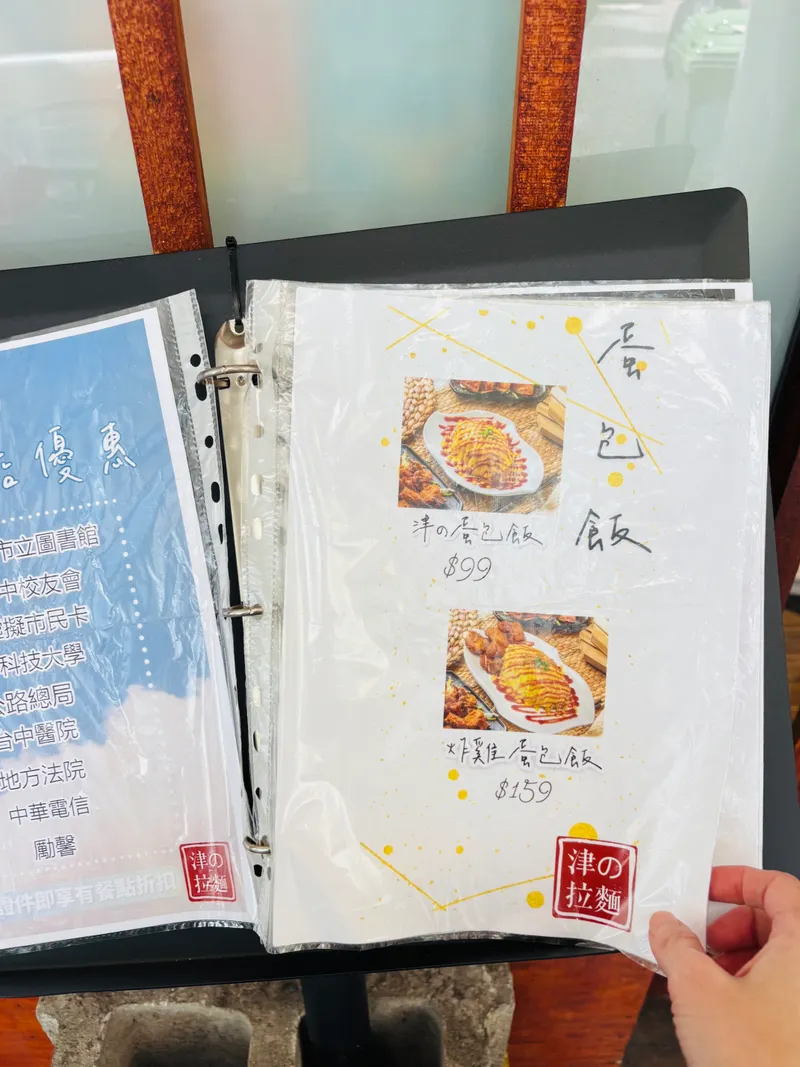 優惠
市立圖書館
中校友會
擬市民卡
科技大學
公路總局
台中醫院
地方法院
中華電信
勵馨
證件即享有餐點折扣
津の
拉麵
蛋包飯
津の蛋包飯
$99
炸雞蛋包飯
$159
津の
拉麵